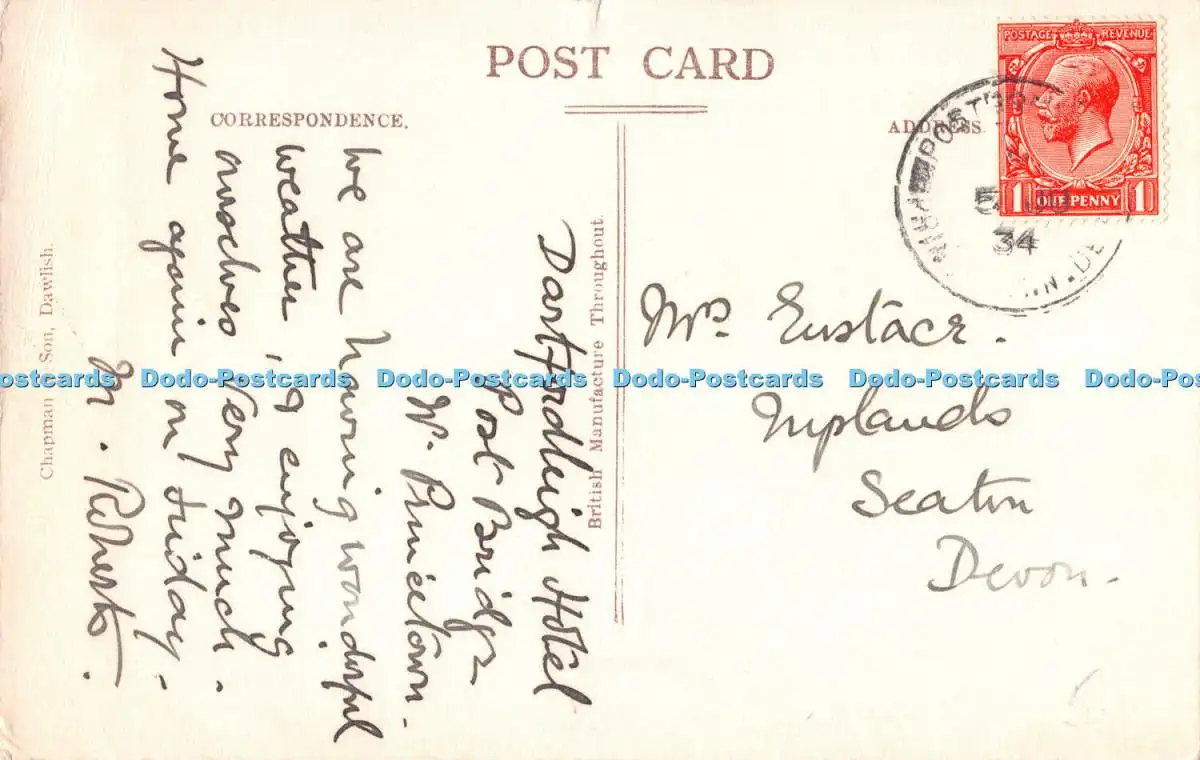 POST CARD
CORRESPONDENCE.
ADDRESS.
POSTAGE REVENUE
1 ONE PENNY 1
POST
5 JU
34
N. DE
Dartfordleigh Hotel
Post Bridge
Nr. Princetown.
We are having wonderful
weather, & enjoying
ourselves very much.
Home again on Friday.
M. Roberts.
British Manufacture Throughout.
Chapman & Son, Dawlish.
Mrs. Eustace.
Seaton
Devon.
Dodo-Postcards Dodo-Postcards Dodo-Postcards Dodo-Postcards Dodo-Postcards